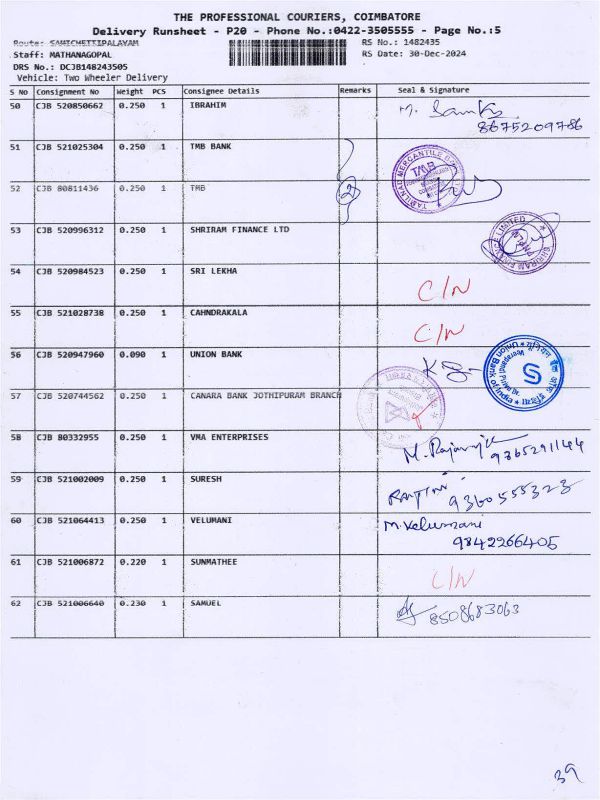 THE PROFESSIONAL COURIERS, COIMBATORE
Delivery Runsheet - P20 - Phone No.:0422-3505555 - Page No.:5
Route: SAMICHETTIPALAYAM RS No.: 1482435
Staff: MATHANAGOPAL RS Date: 30-Dec-2024
DRS No.: DCJB148243505
Vehicle: Two Wheeler Delivery
S No Consignment No Weight PCS Consignee Details Remarks Seal & Signature
50 CJB 520850662 0.250 1 IBRAHIM
8675209786
51 CJB 521025304 0.250 1 TMB BANK
TMB
52 CJB 80811436 0.250 1 TMB 2
53 CJB 520996312 0.250 1 SHRIRAM FINANCE LTD
SHRIRAM FINANCE LIMITED
54 CJB 520984523 0.250 1 SRI LEKHA C/N
55 CJB 521028738 0.250 1 CAHNDRAKALA C/N
56 CJB 520947960 0.090 1 UNION BANK
Union Bank of India
57 CJB 520744562 0.250 1 CANARA BANK JOTHIPURAM BRANCH
58 CJB 80332955 0.250 1 VMA ENTERPRISES
59 CJB 521002009 0.250 1 SURESH
9360555323
60 CJB 521064413 0.250 1 VELUMANI M.Velumani
9842266405
61 CJB 521006872 0.220 1 SUNMATHEE C/N
62 CJB 521006640 0.230 1 SAMUEL 8508683063
39